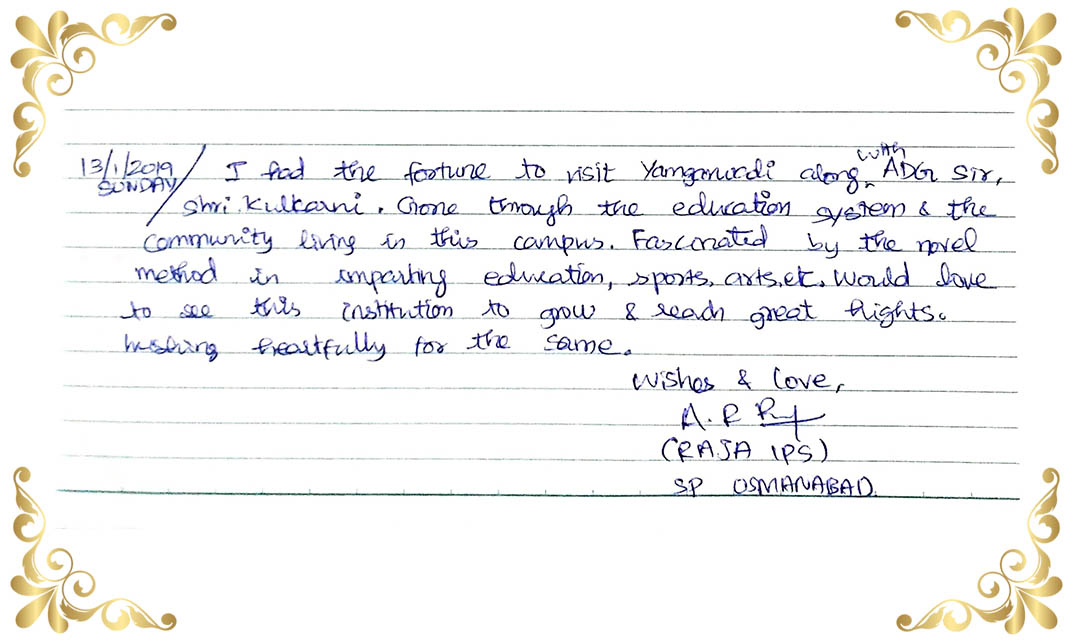 13/1/2019 I had the fortune to visit Yamgarwadi along with ADG Sir,
SUNDAY
Shri. Kulkarni. Gone through the education system & the
community living in this campus. Fascinated by the novel
method in imparting education, sports, arts, etc. Would love
to see this institution to grow & reach great hights.
wishing heartfully for the same.
Wishes & Love,
A.R
(RAJA IPS)
SP OSMANABAD.